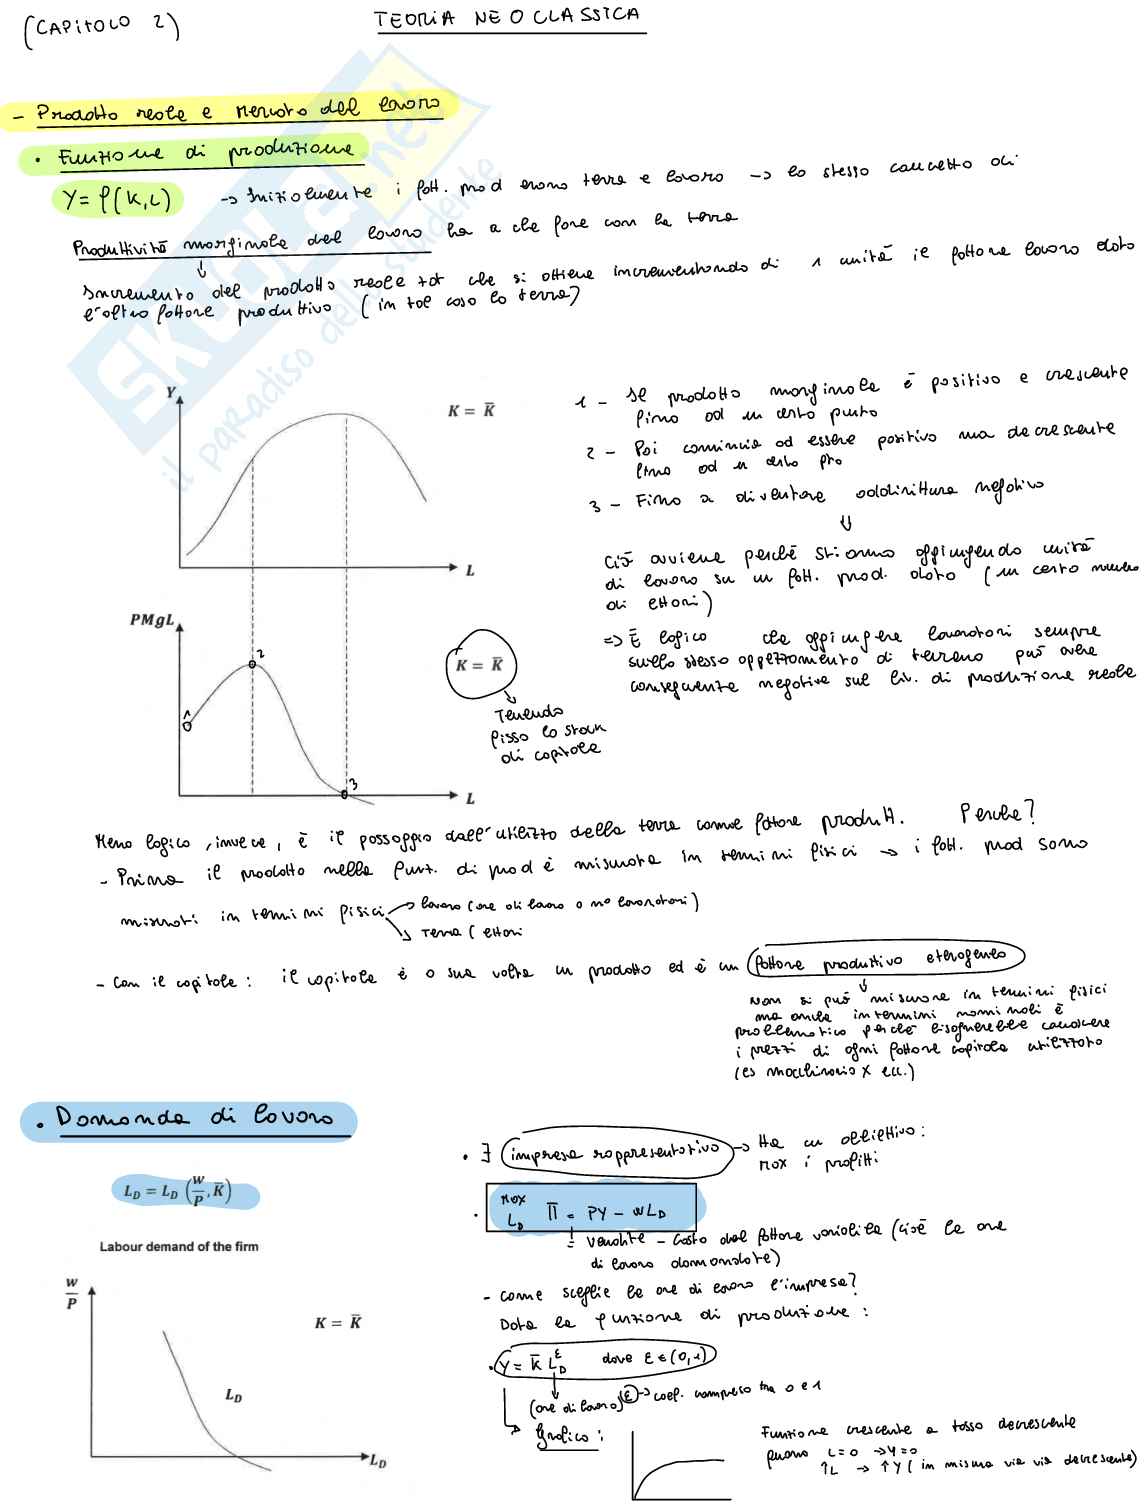 (CAPITOLO 2)
TEORIA NEOCLASSICA
- Prodotto reale e mercato del lavoro
• Funzione di produzione
Y = f(K,L) → Inizialmente i fatt. prod erano terra e lavoro → lo stesso concetto di
Produttività marginale del lavoro ha a che fare con la terra
↓
Incremento del prodotto reale tot che si ottiene incrementando di 1 unità il fattore lavoro dato
l'altro fattore produttivo (in tal caso la terra)
Y
K = K̅
L
1 - Il prodotto marginale è positivo e crescente
fino ad un certo punto
2 - Poi comincia ad essere positivo ma decrescente
fino ad un certo pto
3 - Fino a diventare addirittura negativo
⇓
Ciò avviene perchè stiamo aggiungendo unità
di lavoro su un fatt. prod. dato (un certo numero
di ettari)
⇒ È logico che aggiungere lavoratori sempre
sullo stesso appezzamento di terreno può avere
conseguenze negative sul liv. di produzione reale
PMgL
1
2
3
K = K̅
L
Tenendo
fisso lo stock
di capitale
Meno logico, invece, è il passaggio dall'utilizzo della terra come fattore produtt. Perchè?
- Prima il prodotto nella funz. di prod è misurato in termini fisici → i fatt. prod sono
misurati in termini fisici → lavoro (ore di lavoro o n° lavoratori)
↘ Terra (ettari
- Con il capitale: il capitale è a sua volta un prodotto ed è un fattore produttivo eterogeneo
↓
Non si può misurare in termini fisici
ma anche in termini nominali è
problematico perchè bisognerebbe conoscere
i prezzi di ogni fattore capitale utilizzato
(es macchinario X ecc.)
• Domanda di lavoro
L_D = L_D (W/P, K̅)
Labour demand of the firm
W/P
K = K̅
L_D
L_D
• ∃ impresa rappresentativa → Ha un obiettivo:
max i profitti
• Max L_D Π = PY - WL_D
= Vendite - Costo del fattore variabile (cioè le ore
di lavoro domandate)
- Come sceglie le ore di lavoro l'impresa?
Data la funzione di produzione:
• Y = K̅ L_D^ε dove ε ∈ (0,1)
(ore di lavoro) ε → coef. compreso tra 0 e 1
↳ Grafico:
Funzione crescente a tasso decrescente
quando L=0 → Y=0
↑L → ↑Y (in misura via via decrescente)
SKUOLA.net
il paradiso dello studente